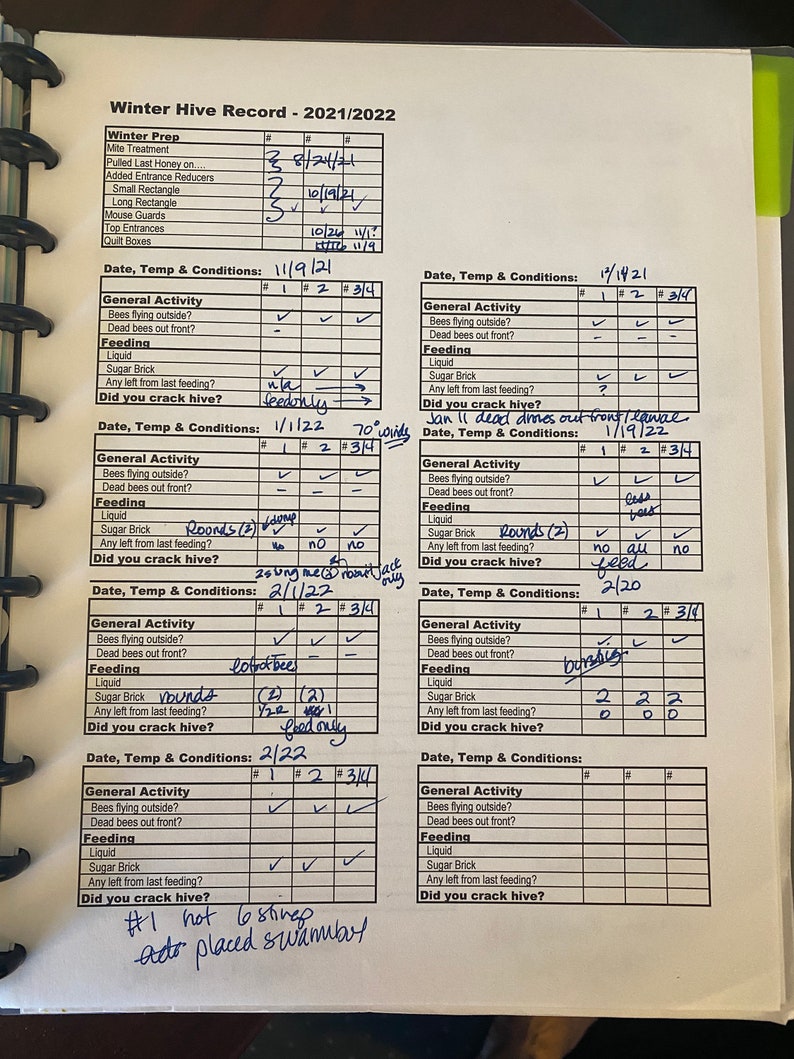 Winter Hive Record - 2021/2022
Winter Prep # # #
Mite Treatment
Pulled Last Honey on.... 8/24/21
Added Entrance Reducers
Small Rectangle 10/19/21
Long Rectangle ✓ ✓ ✓
Mouse Guards
Top Entrances 10/26 11/1?
Quilt Boxes 11/9
Date, Temp & Conditions: 11/9/21
# 1 # 2 # 3/4
General Activity
Bees flying outside? ✓ ✓ ✓
Dead bees out front? -
Feeding
Liquid
Sugar Brick ✓ ✓ ✓
Any left from last feeding? n/a →
Did you crack hive? feed only →
Date, Temp & Conditions: 12/14/21
# 1 # 2 # 3/4
General Activity
Bees flying outside? ✓ ✓ ✓
Dead bees out front? - - -
Feeding
Liquid
Sugar Brick ✓ ✓ ✓
Any left from last feeding? ?
Did you crack hive?
Jan 11 dead drones out front/
Date, Temp & Conditions: 1/1/22 70° windy
# 1 # 2 # 3/4
General Activity
Bees flying outside? ✓ ✓ ✓
Dead bees out front? - - -
Feeding
Liquid
Sugar Brick Rounds (2) ✓ ✓ ✓
Any left from last feeding? no no no
Did you crack hive?
2 stung me no suit jacket only
Date, Temp & Conditions: 1/19/22
# 1 # 2 # 3/4
General Activity
Bees flying outside? ✓ ✓ ✓
Dead bees out front?
Feeding less
Liquid bees
Sugar Brick Rounds (2) ✓ ✓ ✓
Any left from last feeding? no all no
Did you crack hive? feed
Date, Temp & Conditions: 2/1/22
# 1 # 2 # 3/4
General Activity
Bees flying outside? ✓ ✓ ✓
Dead bees out front? - - -
Feeding lots of bees
Liquid
Sugar Brick rounds (2) (2)
Any left from last feeding? 1
Did you crack hive? feed only
Date, Temp & Conditions: 2/20
# 1 # 2 # 3/4
General Activity
Bees flying outside? ✓ ✓ ✓
Dead bees out front?
Feeding
Liquid
Sugar Brick 2 2 2
Any left from last feeding? 0 0 0
Did you crack hive?
Date, Temp & Conditions: 2/22
# 1 # 2 # 3/4
General Activity
Bees flying outside? ✓ ✓ ✓
Dead bees out front?
Feeding
Liquid
Sugar Brick ✓ ✓ ✓
Any left from last feeding?
Did you crack hive?
#1 hot 6 stings
placed swarm box
Date, Temp & Conditions:
# # #
General Activity
Bees flying outside?
Dead bees out front?
Feeding
Liquid
Sugar Brick
Any left from last feeding?
Did you crack hive?